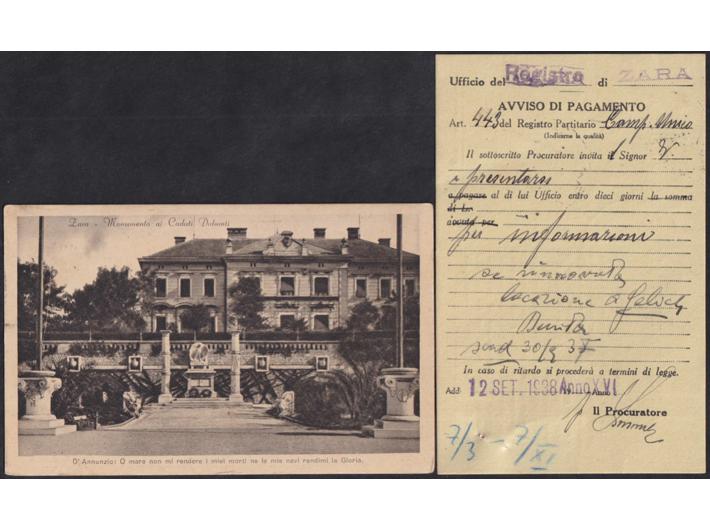 Zara - Monumento ai Caduti Dalmati
D'Annunzio: O mare non mi rendere i miei morti ne le mie navi rendimi la Gloria.
Ufficio del Registro di ZARA
AVVISO DI PAGAMENTO
Art. 443 del Registro Partitario Camp. Unico
(Indicarne la qualità)
Il sottoscritto Procuratore invita il Signor V.
a presentarsi
a pagare al di lui Ufficio entro dieci giorni la somma
di L.
dovuta per
per informazioni
se rinnovata
locazione a
scad 30/9 37
In caso di ritardo si procederà a termini di legge.
Add 12 SET. 1938 Anno XVI
Il Procuratore
7/3 - 7/XI